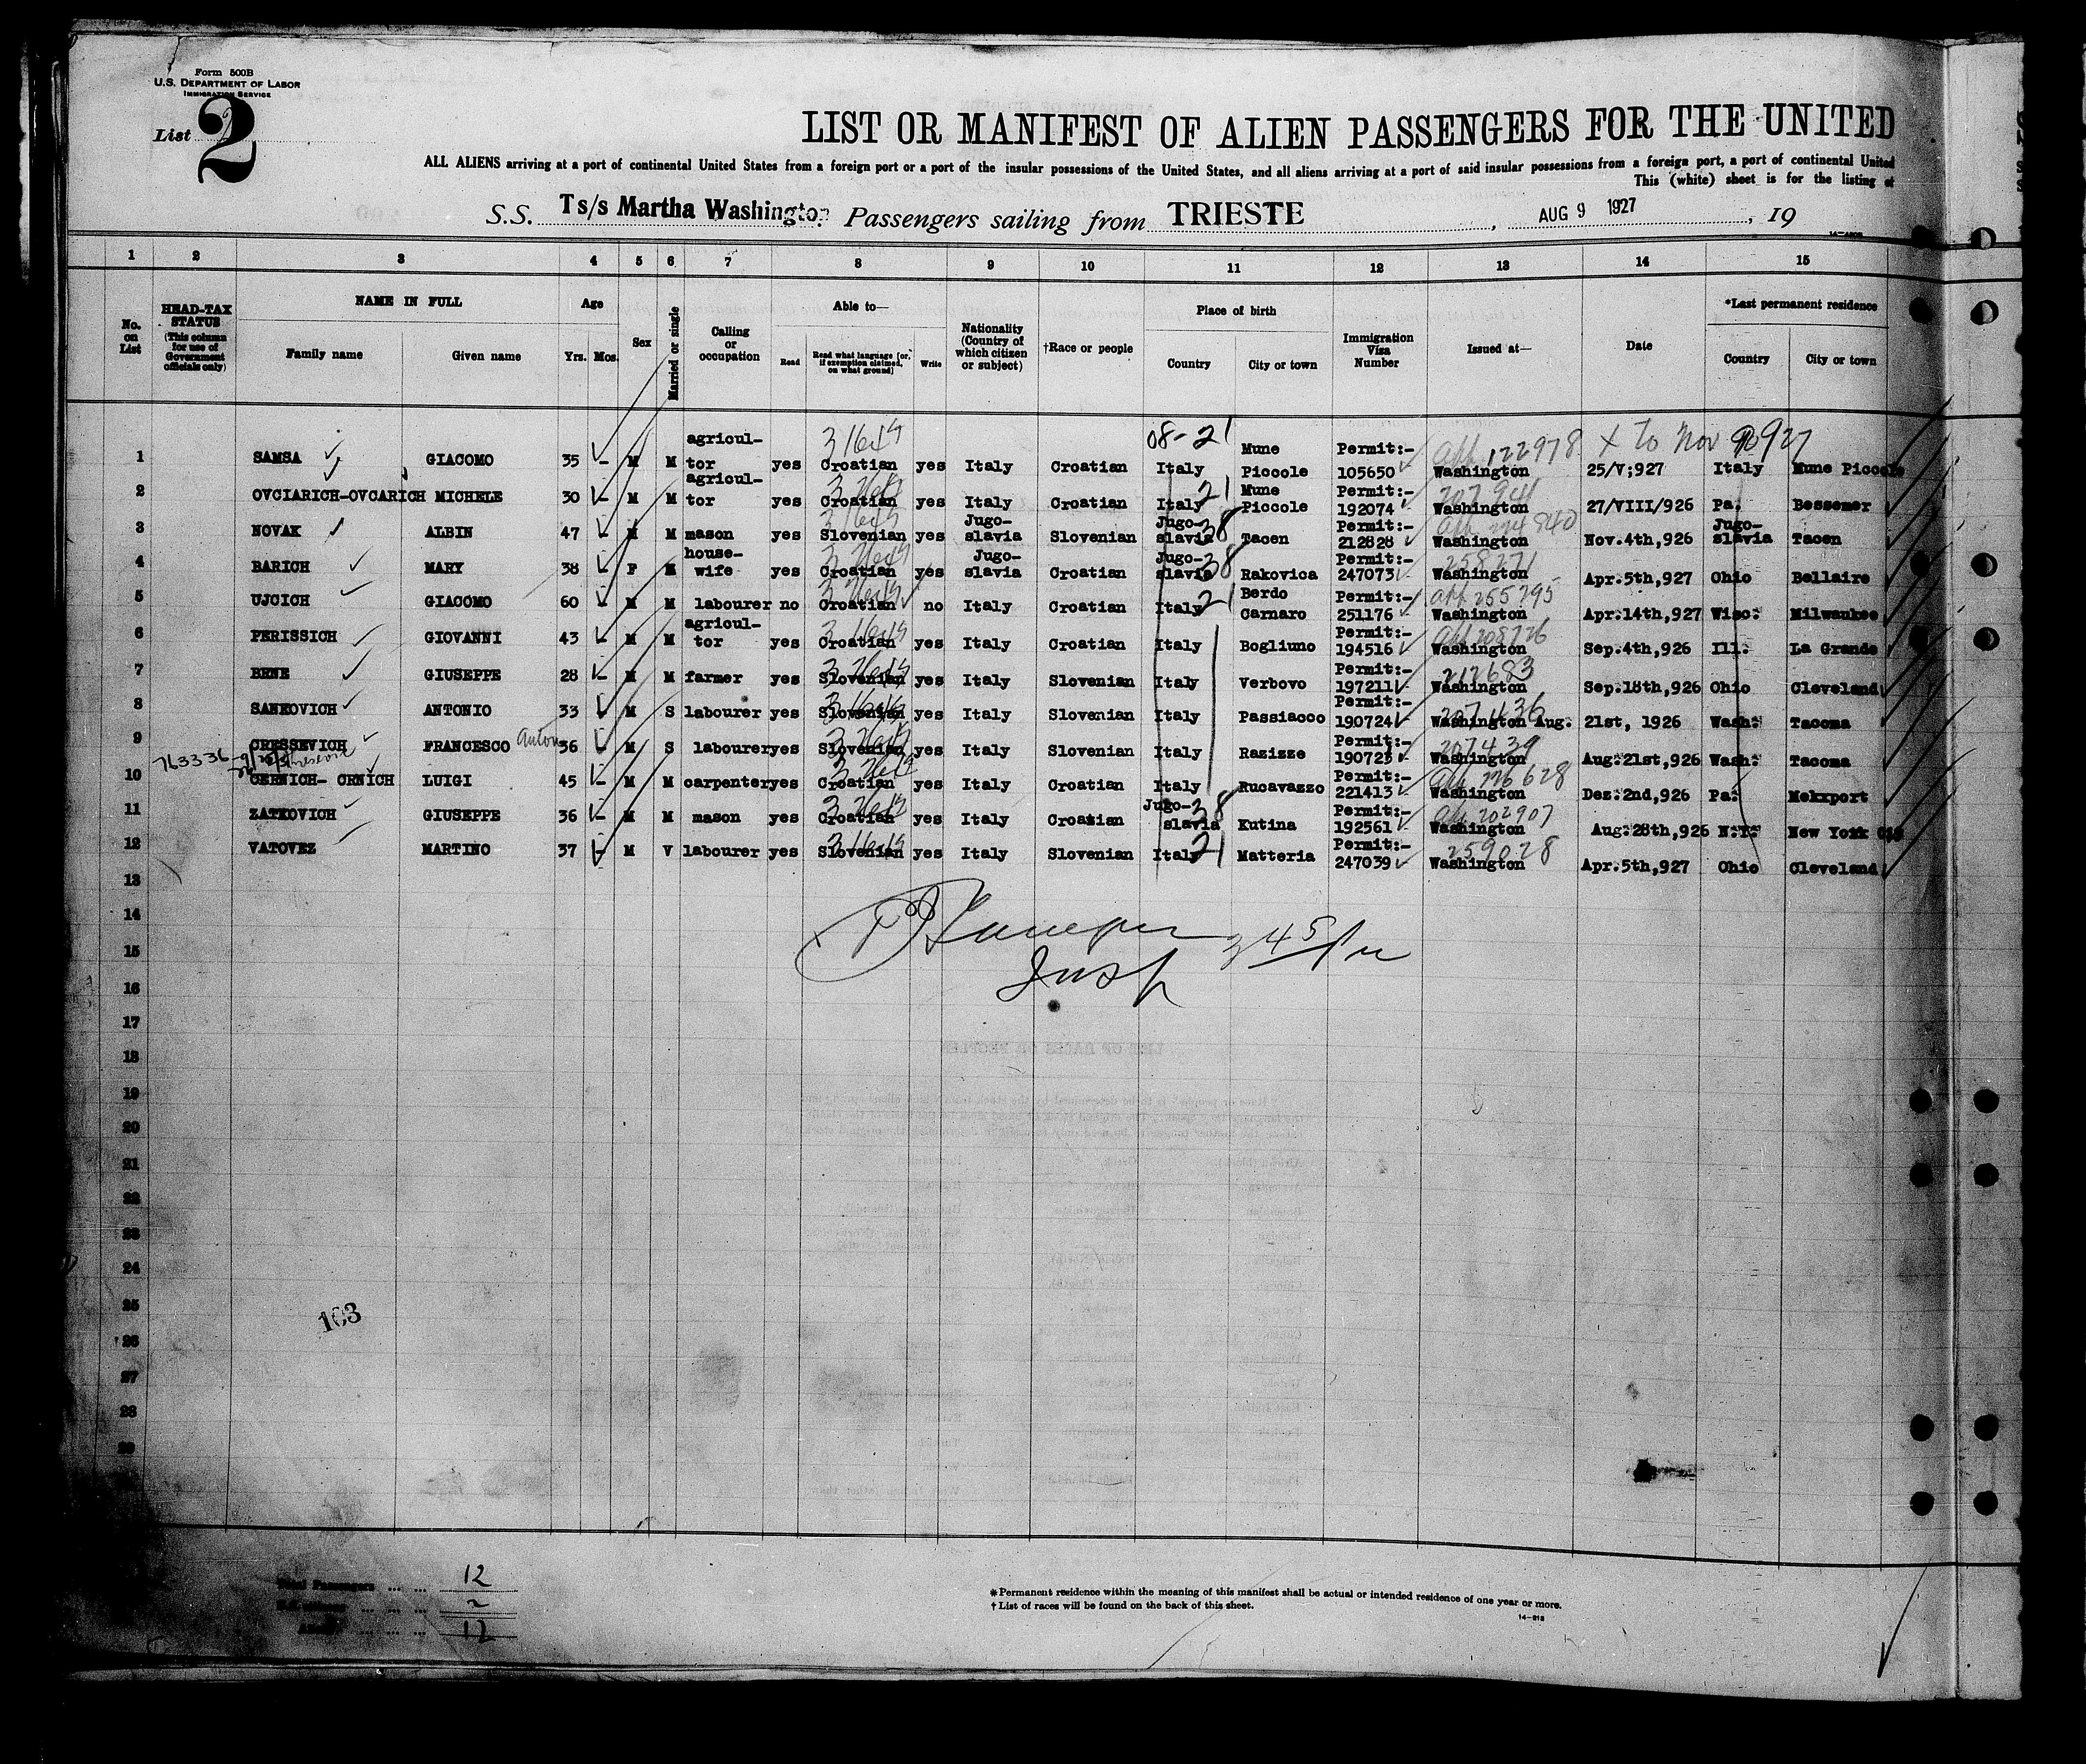 Form 500B
U.S. DEPARTMENT OF LABOR
IMMIGRATION SERVICE
List 2
LIST OR MANIFEST OF ALIEN PASSENGERS FOR THE UNITED
ALL ALIENS arriving at a port of continental United States from a foreign port or a port of the insular possessions of the United States, and all aliens arriving at a port of said insular possessions from a foreign port, a port of continental United
This (white) sheet is for the listing of
S.S. Ts/s Martha Washington Passengers sailing from TRIESTE, AUG 9 1927, 19
1 2 3 4 5 6 7 8 9 10 11 12 13 14 15
No. on List
HEAD-TAX STATUS (This column for use of Government officials only)
NAME IN FULL Family name Given name
Age Yrs. Mos.
Sex
Married or single
Calling or occupation
Able to— Read Read what language [or, if exemption claimed, on what ground] Write
Nationality (Country of which citizen or subject)
†Race or people
Place of birth Country City or town
Immigration Visa Number
Issued at—
Date
*Last permanent residence Country City or town
08-21 122978 X To Nov 927
1 SAMSA GIACOMO 35 - M M agricul-tor yes Croatian yes Italy Croatian Italy Mune Piccole Permit:- 105650 Washington 25/V;927 Italy Mune Piccole
2 OVCIARICH-OVCARICH MICHELE 30 - M M agricul-tor yes Croatian yes Italy Croatian Italy 21 Mune Piccole Permit:- 192074 Washington 27/VIII/926 Pa. Bessemer
3 NOVAK ALBIN 47 - M M mason yes Slovenian yes Jugo-slavia Slovenian Jugo-slavia 38 Tacen Permit:- 212828 Washington Nov.4th,926 Jugo-slavia Tacen
4 BARICH MARY 38 - F M house-wife yes Croatian yes Jugo-slavia Croatian Jugo-slavia 38 Rakovica Permit:- 247073 258271 Washington Apr.5th,927 Ohio Bellaire
5 UJCICH GIACOMO 60 - M M labourer no Croatian no Italy Croatian Italy 21 Berdo Carnaro Permit:- 251176 255795 Washington Apr.14th,927 Wisc. Milwaukee
6 PERISSICH GIOVANNI 43 - M M agricul-tor yes Croatian yes Italy Croatian Italy Bogliuno Permit:- 194516 Washington Sep.4th,926 Ill. La Grande
7 BENE GIUSEPPE 28 - M M farmer yes Slovenian yes Italy Slovenian Italy Verbovo Permit:- 197211 212683 Washington Sep.18th,926 Ohio Cleveland
8 SANKOVICH ANTONIO 33 - M S labourer yes Slovenian yes Italy Slovenian Italy Passiacco Permit:- 190724 207436 Washington Aug. 21st, 1926 Wash. Tacoma
9 CRESSEVICH FRANCESCO Anton 36 - M S labourer yes Slovenian yes Italy Slovenian Italy Razizze Permit:- 190723 207439 Washington Aug.21st,926 Wash. Tacoma
763336
10 CERNICH- CRNICH LUIGI 45 - M M carpenter yes Croatian yes Italy Croatian Italy Rucavazzo Permit:- 221413 226628 Washington Dez.2nd,926 Pa. Mekxport
11 ZATKOVICH GIUSEPPE 36 - M M mason yes Croatian yes Italy Croatian Jugo-slavia 38 Kutina Permit:- 192561 202907 Washington Aug.28th,926 N.Y. New York
12 VATOVEZ MARTINO 37 - M V labourer yes Slovenian yes Italy Slovenian Italy 21 Matteria Permit:- 247039 259028 Washington Apr.5th,927 Ohio Cleveland
13
14
15
Insp
16
17
18
19
20
21
22
23
24
25
103
26
27
28
29
Total Passengers ... ... 12
12
*Permanent residence within the meaning of this manifest shall be actual or intended residence of one year or more.
†List of races will be found on the back of this sheet.
14-213